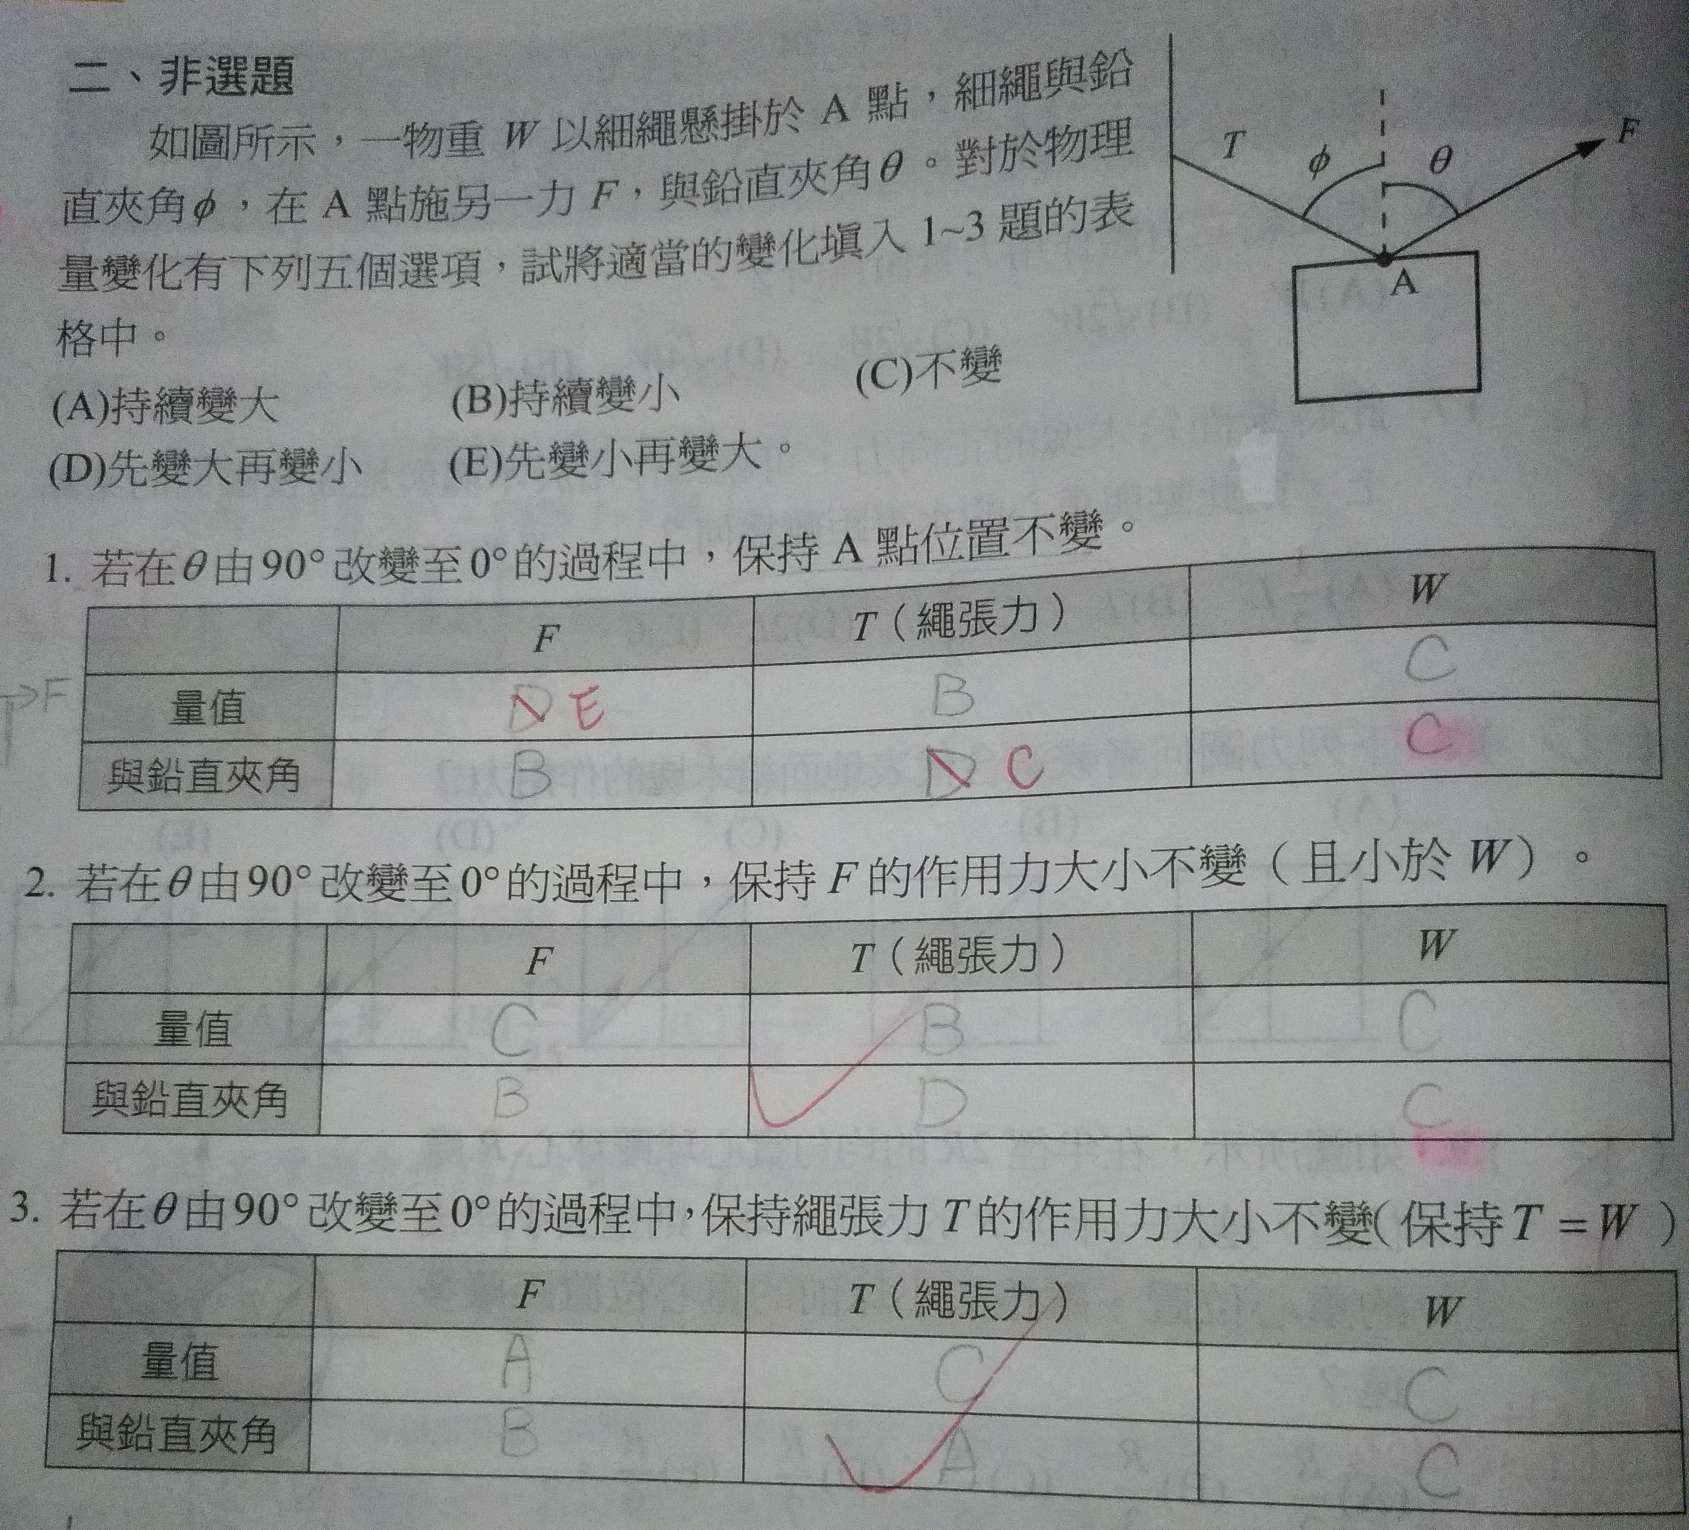 二、非選題
如圖所示，一物重 W 以細繩懸掛於 A 點，細繩與鉛
直夾角ϕ，在 A 點施另一力 F，與鉛直夾角θ。對於物理
量變化有下列五個選項，試將適當的變化填入 1~3 題的表
格中。
(A)持續變大 (B)持續變小 (C)不變
(D)先變大再變小 (E)先變小再變大。
T ϕ θ F
A
1. 若在θ由90°改變至0°的過程中，保持 A 點位置不變。
F T（繩張力） W
量值 D E B C
與鉛直夾角 B D C C
→F
2. 若在θ由90°改變至0°的過程中，保持 F 的作用力大小不變（且小於 W）。
F T（繩張力） W
量值 C B C
與鉛直夾角 B D C
3. 若在θ由90°改變至0°的過程中，保持繩張力 T 的作用力大小不變(保持 T = W )
F T（繩張力） W
量值 A C C
與鉛直夾角 B A C